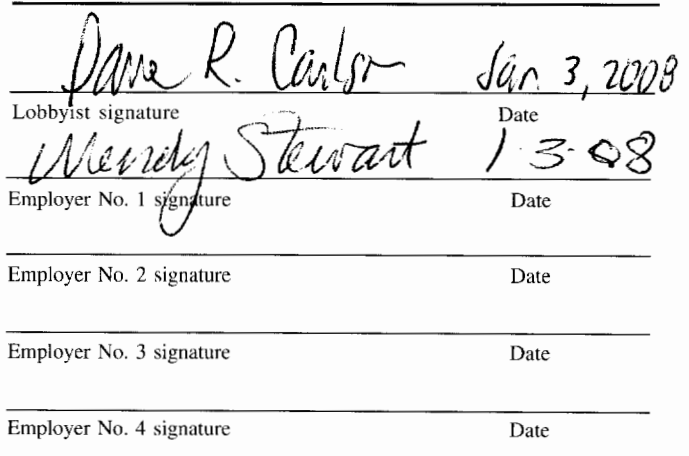 Dane R. Carlson Jan. 3, 2008
Lobbyist signature Date
Wendy Stewart 1-3-08
Employer No. 1 signature Date
Employer No. 2 signature Date
Employer No. 3 signature Date
Employer No. 4 signature Date